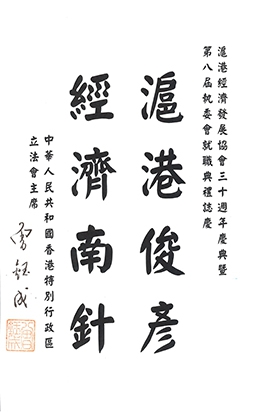 滬港經濟發展協會三十週年慶典暨
第八屆執委會就職典禮誌慶
滬港俊彥
經濟南針
中華人民共和國香港特別行政區
立法會主席
曾鈺成